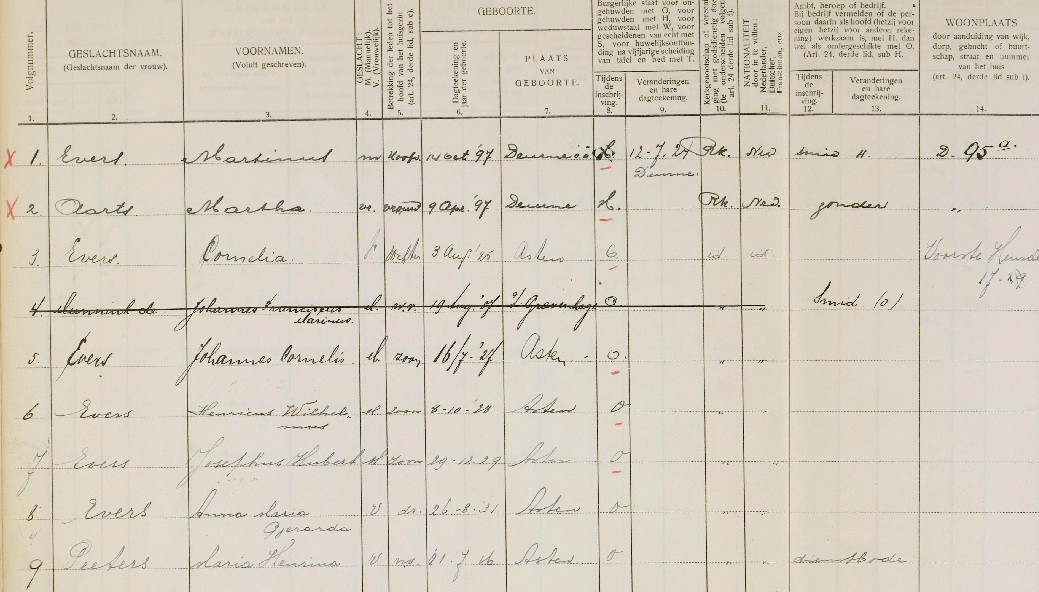 Volgnummer.
GESLACHTSNAAM.
(Geslachtsnaam der vrouw).
VOORNAMEN.
(Voluit geschreven).
GESLACHT:
M. (Mannelijk).
V. (Vrouwelijk).
Betrekking der leden tot het
hoofd van het huisgezin
(art. 24, derde lid sub c).
GEBOORTE.
Dagteekening en
jaar der geboorte.
PLAATS
VAN
GEBOORTE.
Burgerlijke staat voor on-
gehuwden met O, voor
gehuwden met H, voor
weduwstaat met W, voor
gescheidenen van echt met
S, voor huwelijksontbin-
ding na vijfjarige scheiding
van tafel en bed met T.
Tijdens
de
inschrij-
ving.
Veranderingen
en hare
dagteekening.
NATIONALITEIT
door in te vullen:
Nederlander,
Duitscher,
Franschman, enz.
Ambt, beroep of bedrijf.
Bij bedrijf vermelden of de per-
soon daarin als hoofd (hetzij voor
eigen hetzij voor anderer reke-
ning) werkzaam is, met H. dan
wel als ondergeschikte met O.
(Art. 24, derde lid, sub H.
Tijdens
de
inschrij-
ving.
Veranderingen
en hare
dagteekening.
WOONPLAATS
door aanduiding van wijk,
dorp, gehucht of buurt-
schap, straat en nummer
van het huis
(art. 24, derde lid sub i).
1. 2. 3. 4. 5. 6. 7. 8. 9. 10. 11. 12. 13. 14.
x 1. Evers. Martinus m Hoofd 14 Oct '97 Deurne H. 12-7.24 Rk. Ned smid H. D. 95 a.
Deurne.
x 2. Aarts. Martha. vr. vrouw 9 Apr. '97 Deurne H. Rk. Ned. zonder "
3. Evers. Cornelia. 3 Aug '25 Asten O id id Voorste
17-
4. Johannes Franciscus 19 Aug '07 's Gravenhage O " " Smid (O)
Marinus.
5. Evers Johannes Cornelis. M. zoon 16/7-'27 Asten - O. " "
6 Evers Henricus Wilhel- M. zoon 8-10-'28 Asten O " "
mus
7 Evers Josephus Hubert M zoon 29-12-29 Asten O " "
8 Evers Anna Maria V dr. 26-8-31 Asten O
Gerarda
9 Peeters Maria Henrina V 21-7-16 Asten O dienstbode